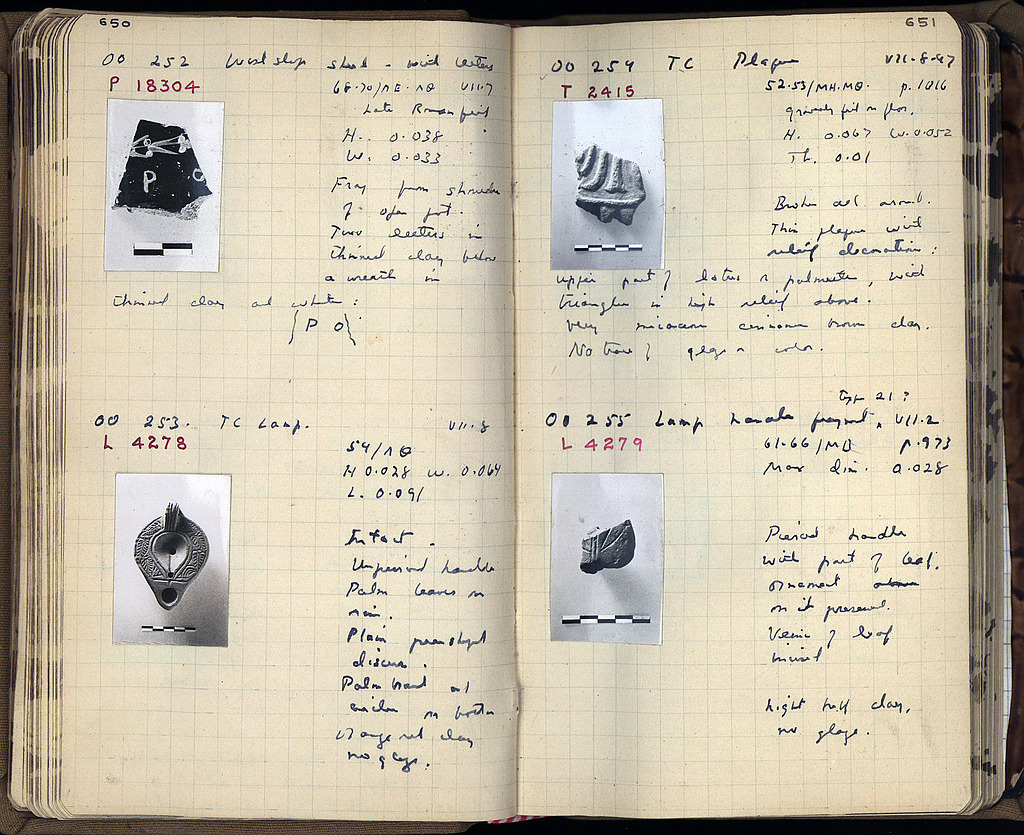 650
OO 252 West slope sherd - with letters
P 18304
68-70/ΛΕ-ΛΘ VII-7
Late Roman fill
H. 0.038
W. 0.033
Frag from shoulder
of open pot.
Two letters in
thinned clay below
a wreath in
thinned clay and white:
P O
OO 253. TC Lamp. VII-8
L 4278
54/ΛΘ
H 0.028 W. 0.064
L. 0.091
Intact.
Unpierced handle
Palm leaves on
rim.
Plain
discus.
Palm branch and
on bottom
Orange red clay
no glaze.
651
OO 254 TC Plaque VII-8-47
T 2415
52.53/ΜΗ.ΜΘ. p. 1016
H. 0.067 W. 0.052
Th. 0.01
Broken all around.
Thin plaque with
relief decoration:
upper part of lotus & palmette, with
triangles in high relief above.
Very micaceous cinnamon brown clay.
No trace of glaze or color.
Type 21?
OO 255 Lamp handle fragment, VII-2
L 4279
61-66/ p. 973
Max dim. 0.028
Pierced handle
with part of leaf
ornament
on it preserved.
Veins of leaf
incised
Light buff clay,
no glaze.
P O